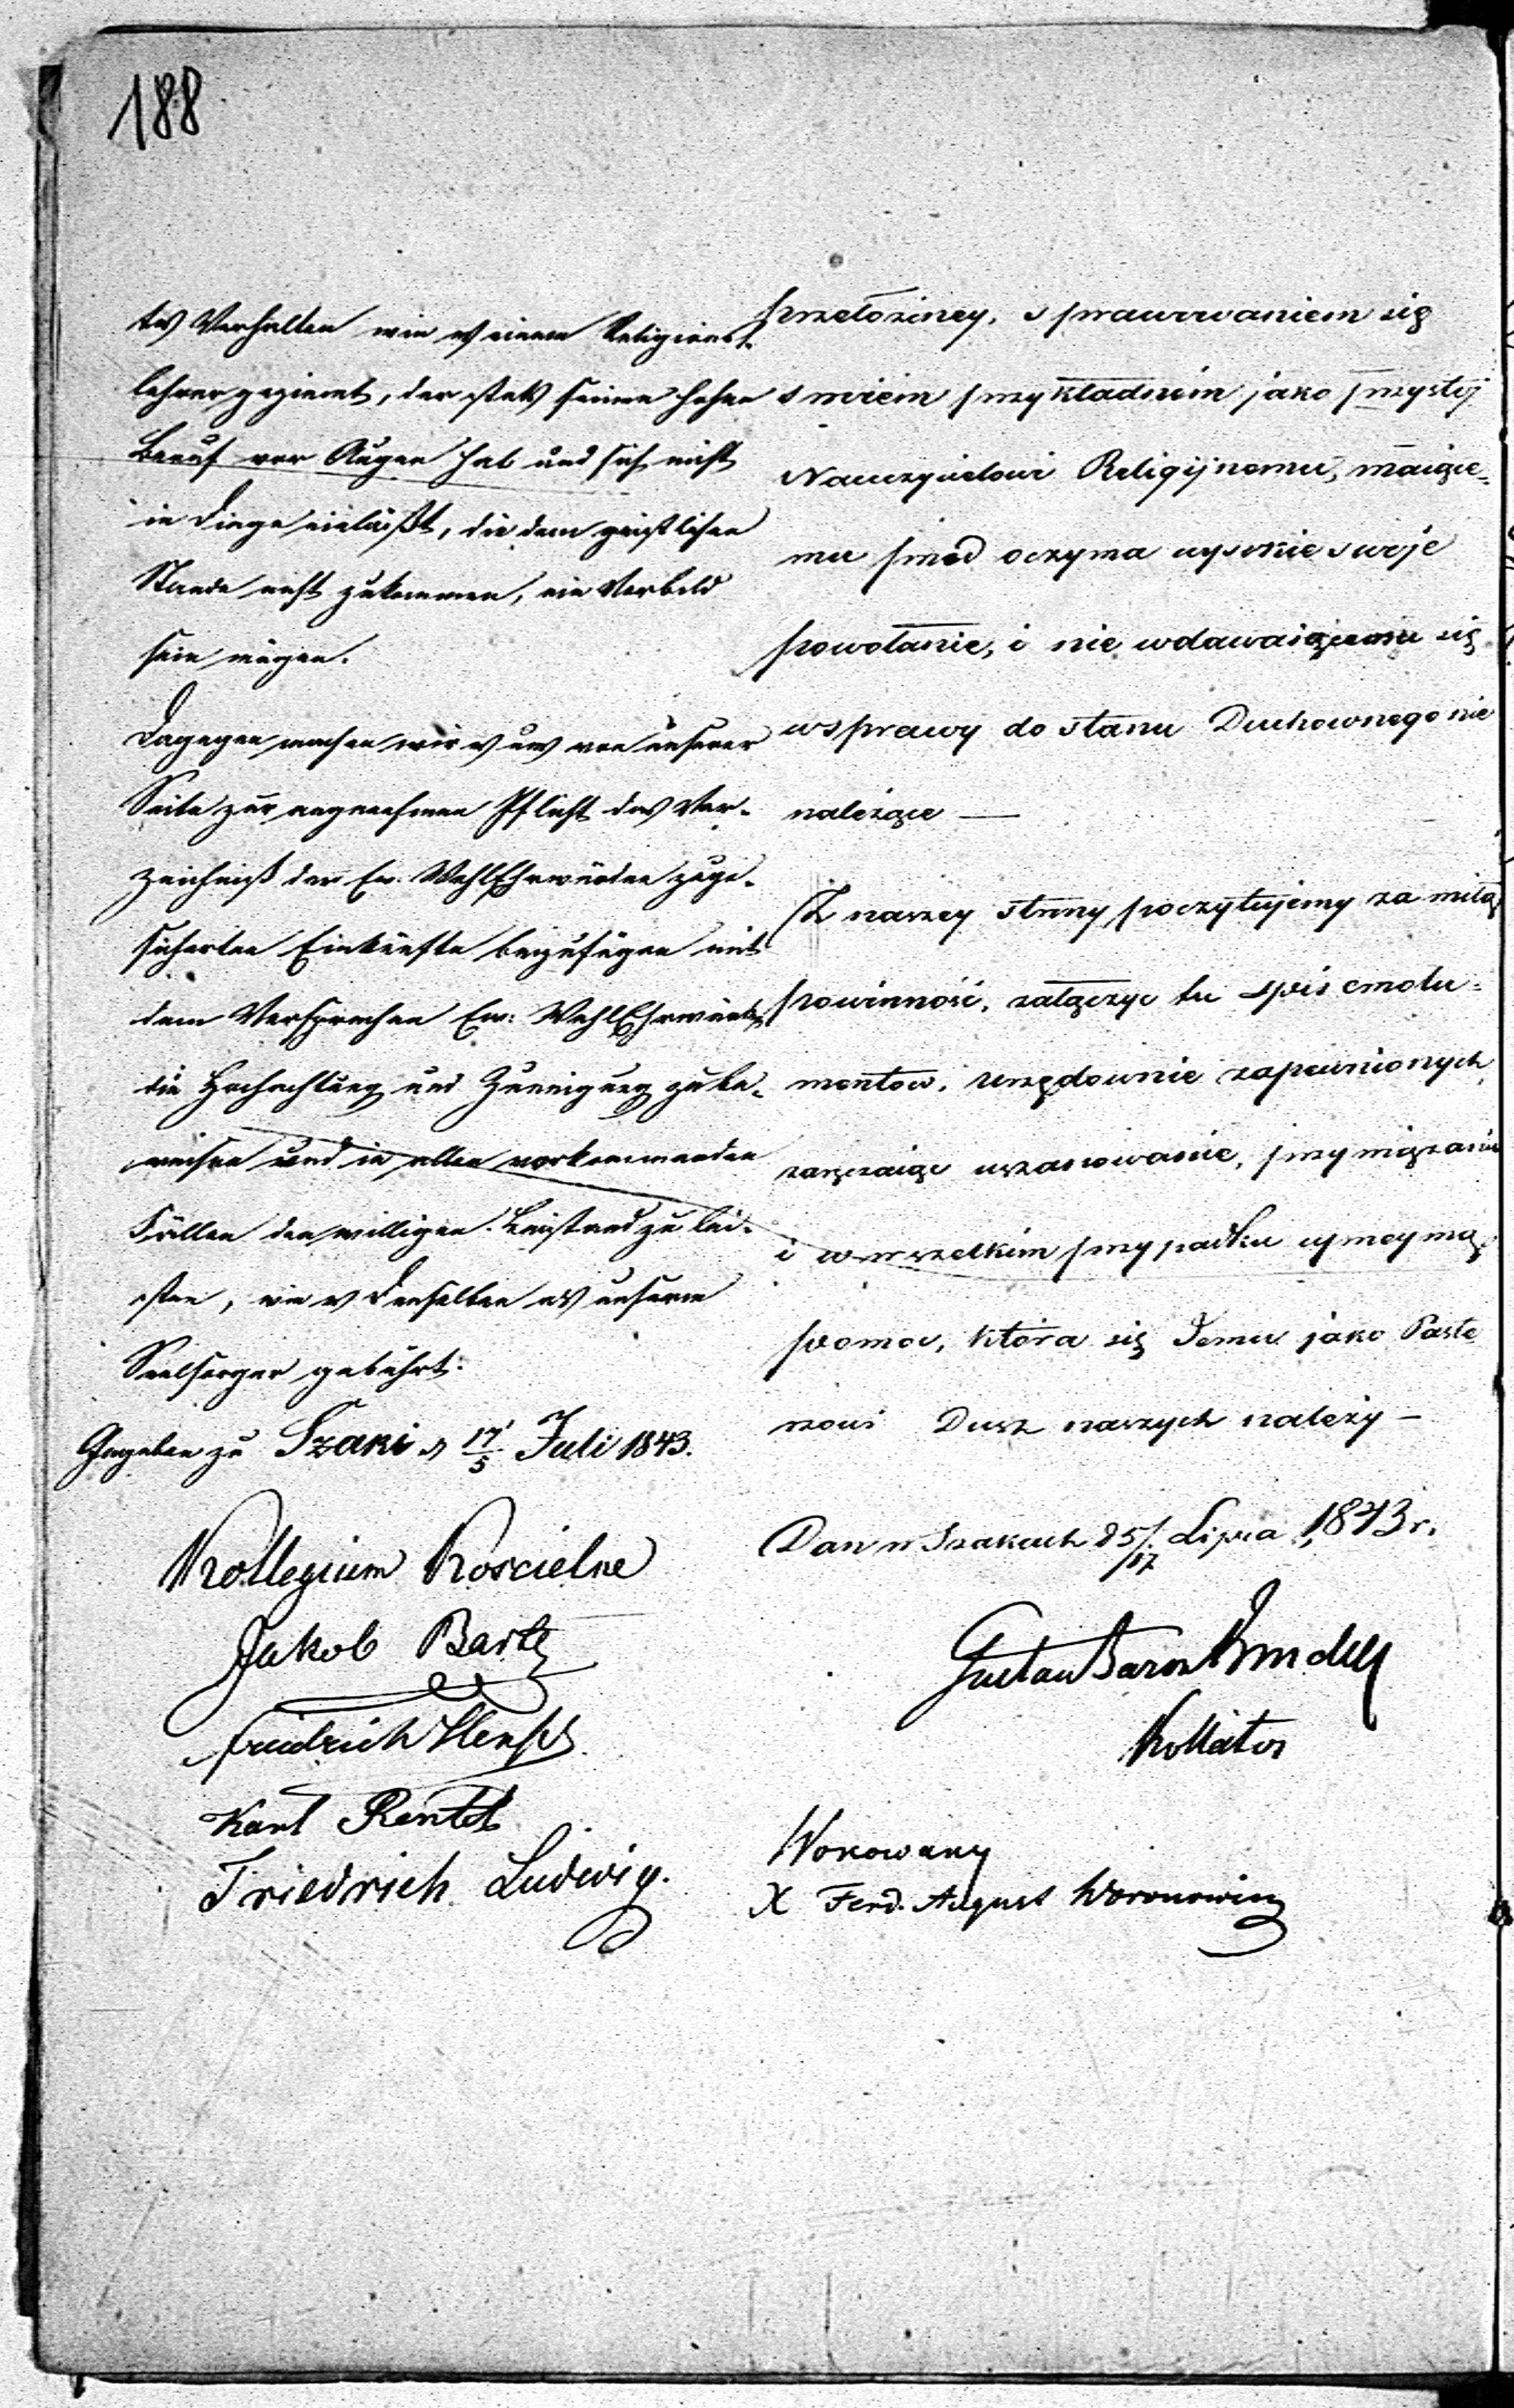 188
tes Verhalten wie es einem Religions-
lehrer geziemt, der stets seinen hohen
Beruf vor Augen hat und sich nicht
in Dinge einläßt, die dem geistlichen
Stande nicht zukommen, ein Vorbild
sein mögen.
Dagegen machen wir es uns von unserer
Seite zur angenehmen Pflicht das Ver-
zeichniß der Ew. WohlEhrwürden zuge-
sicherten Einkünfte beizufügen mit
dem Versprechen Ew: WohlEhrwürden
die Hochachtung und Zuneigung zu be-
weisen und in allen vorkommenden
Fällen den willigen Beistand zu lei-
sten, wie es Denselben als unserem
Seelsorger gebührt.
Gegeben zu Szaki d 17/5 Juli 1843.
Kollegium Koscielne
Jakob Bartz
Friedrich
Karl
Friedrich Ludwig.
przełożiney, sprawowaniem się
swiem przykładnem jako przystoj
Nauczycielowi Religijnemu, maiące-
mu przed oczyma wysokie swoje
powołanie, i nie wdawaiącemu się
w sprawy do stanu Duchownego nie
należące —
Z naszey strony poczytujemy za miłą
powinność, załączyc tu spis emolu-
mentow, urzędownie zapewnionych,
zaręczaiąc uszanowanie, przywiązanie
i w wszelkim przypadku uprzeymą
pomoc, która się Jemu jako Paste
rzowi Dusz naszych należy —
Dan w Szakach d 5/17 Lipca 1843 r.
Gustav Baron
Kollator
Wokowany
X Ferd. August Woronowicz